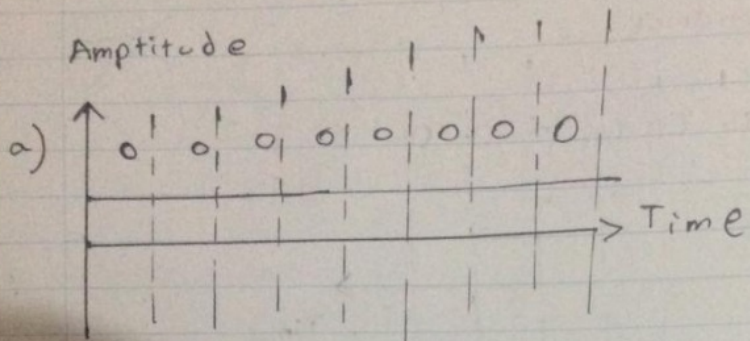 Amptitude
a) 0 0 0 0 0 0 0 0
Time